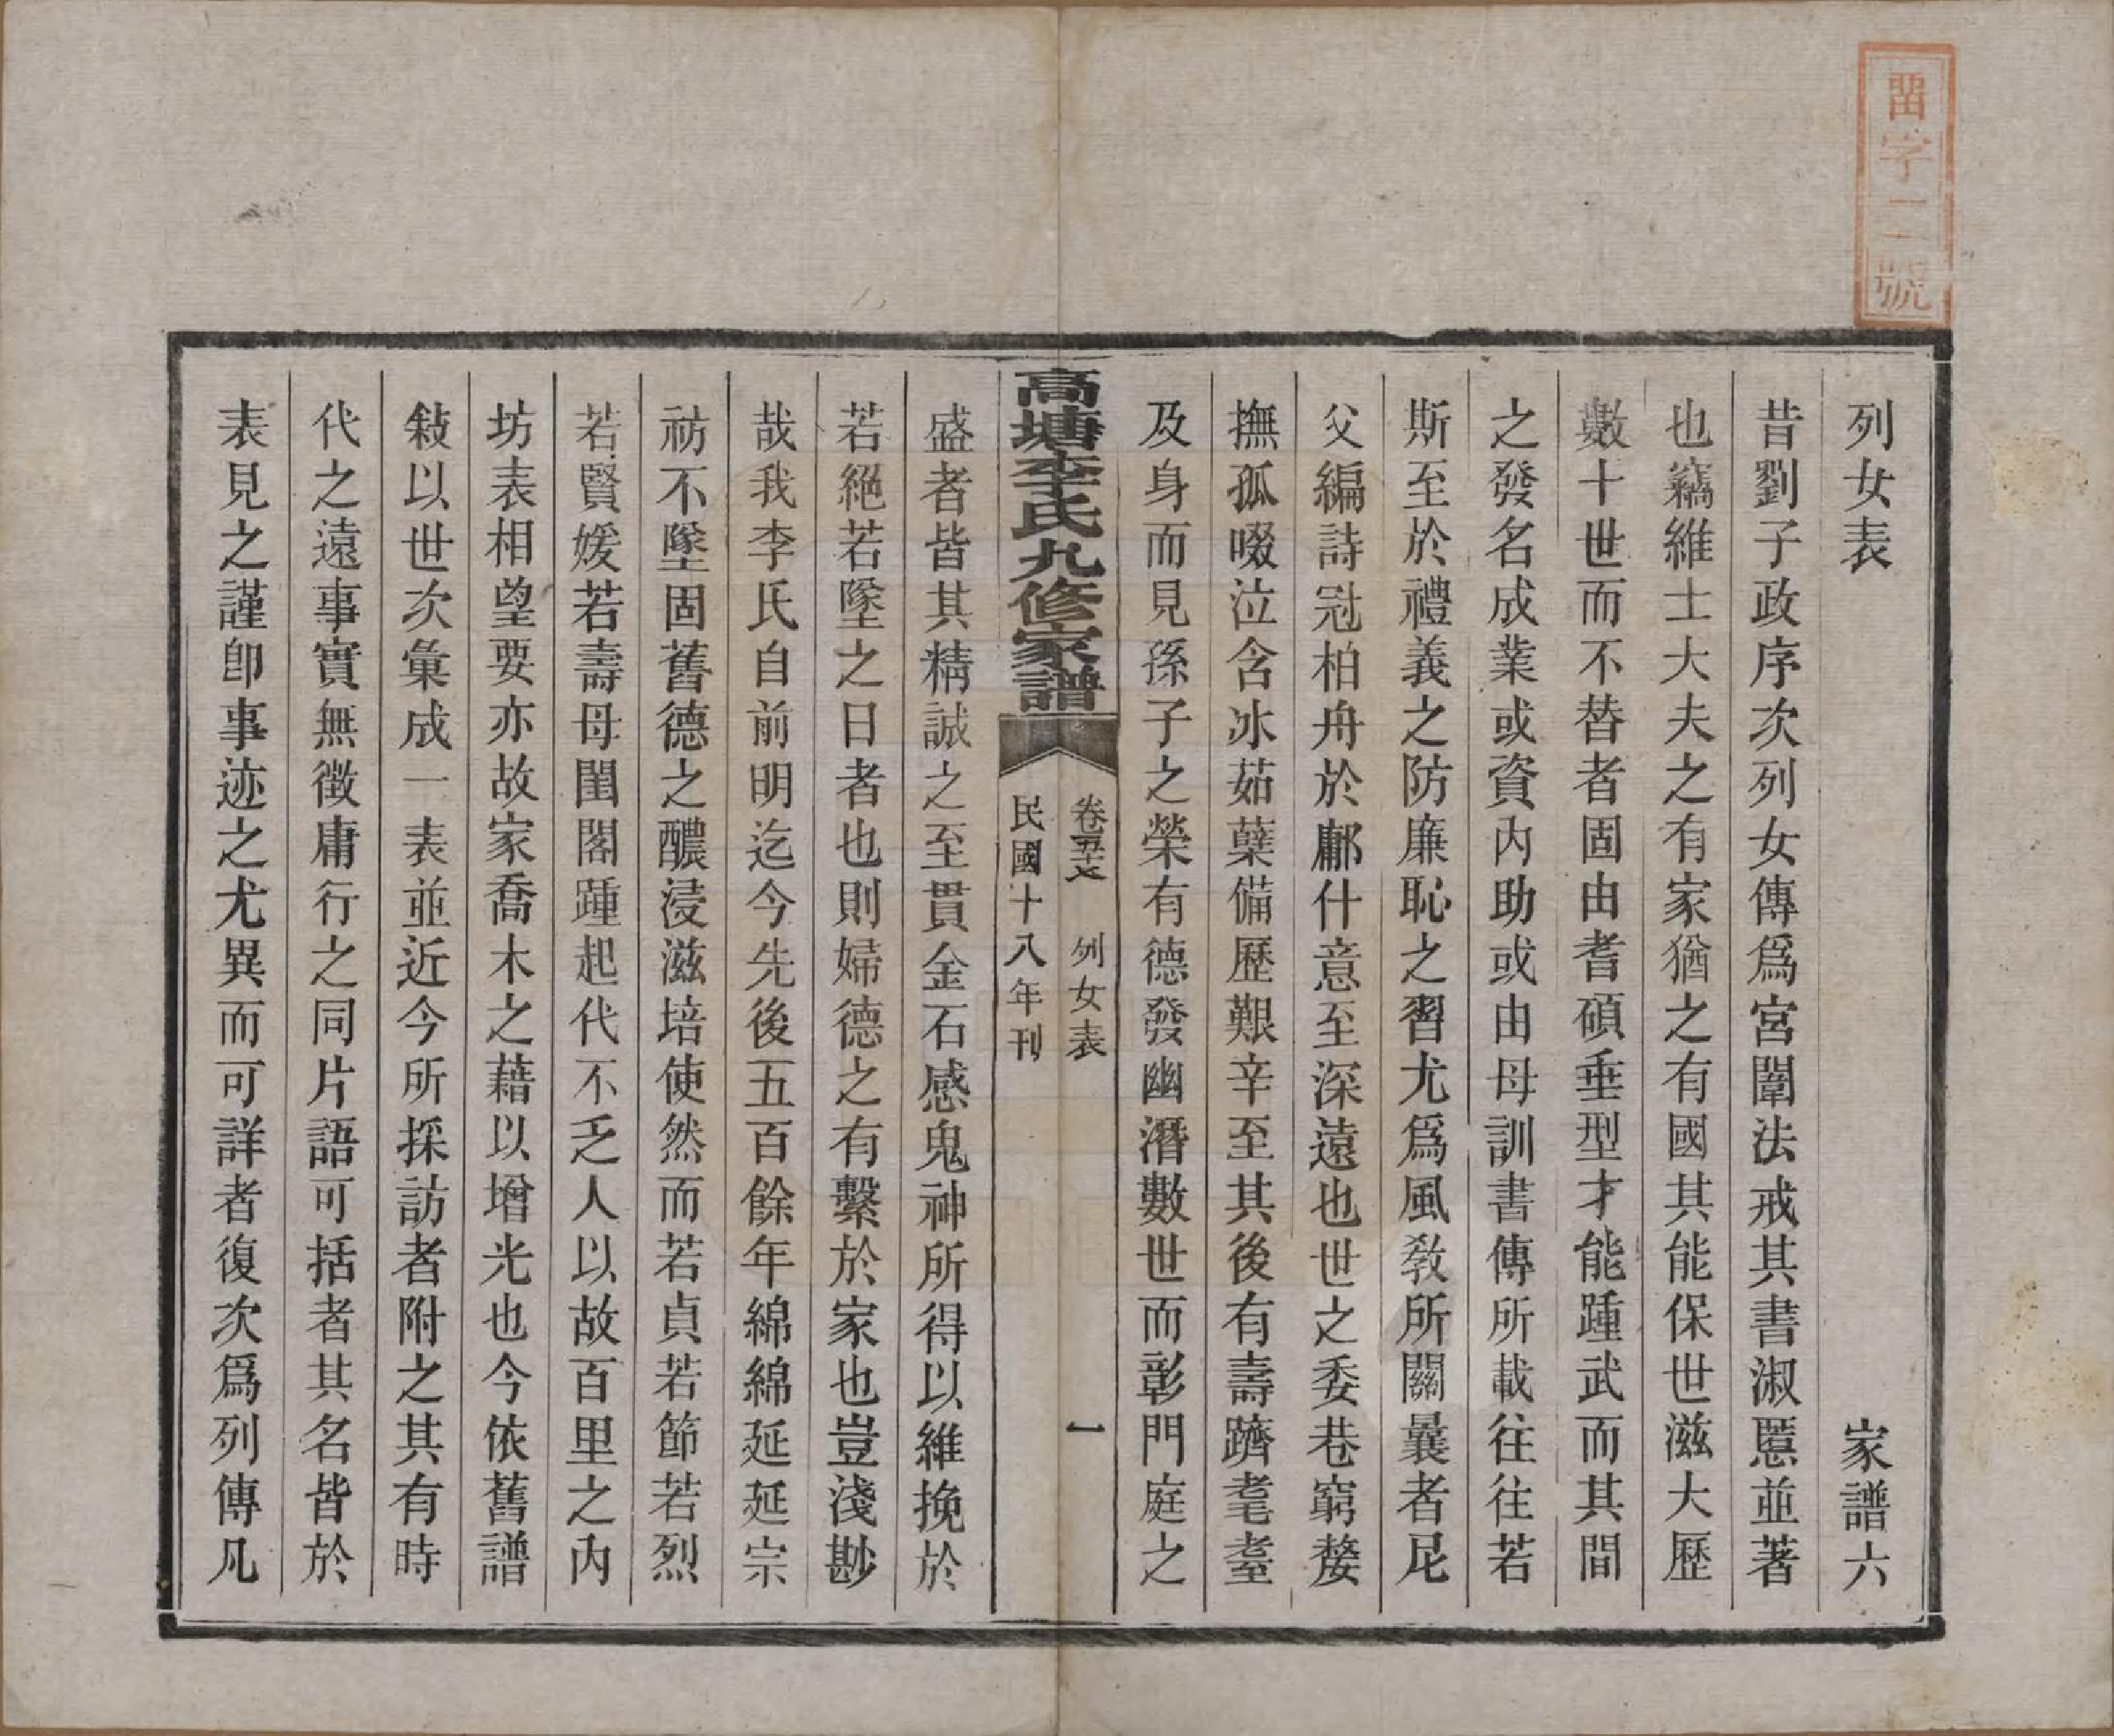 列女表　家譜六
昔劉子政序次列女傳爲宮闈法戒其書淑慝並著
也竊維士大夫之有家猶之有國其能保世滋大歷
數十世而不替者固由耆碩垂型才能踵武而其間
之發名成業或資內助或由母訓書傳所載往往若
斯至於禮義之防廉恥之習尤爲風敎所關曩者尼
父編詩冠柏舟於鄘什意至深遠也世之委巷窮嫠
撫孤啜泣含冰茹蘗備歷艱辛至其後有壽躋耄耋
及身而見孫子之榮有德發幽潛數世而彰門庭之
高塘李氏九修家譜
卷五七　列女表　一
民國十八年刊
盛者皆其精誠之至貫金石感鬼神所得以維挽於
若絕若墜之日者也則婦德之有繫於家也豈淺尠
哉我李氏自前明迄今先後五百餘年綿綿延延宗
祊不墜固舊德之醲浸滋培使然而若貞若節若烈
若賢媛若壽母閨閣踵起代不乏人以故百里之內
坊表相望要亦故家喬木之藉以增光也今依舊譜
敍以世次彙成一表並近今所採訪者附之其有時
代之遠事實無徵庸行之同片語可括者其名皆於
表見之謹卽事迹之尤異而可詳者復次爲列傳凡
字號